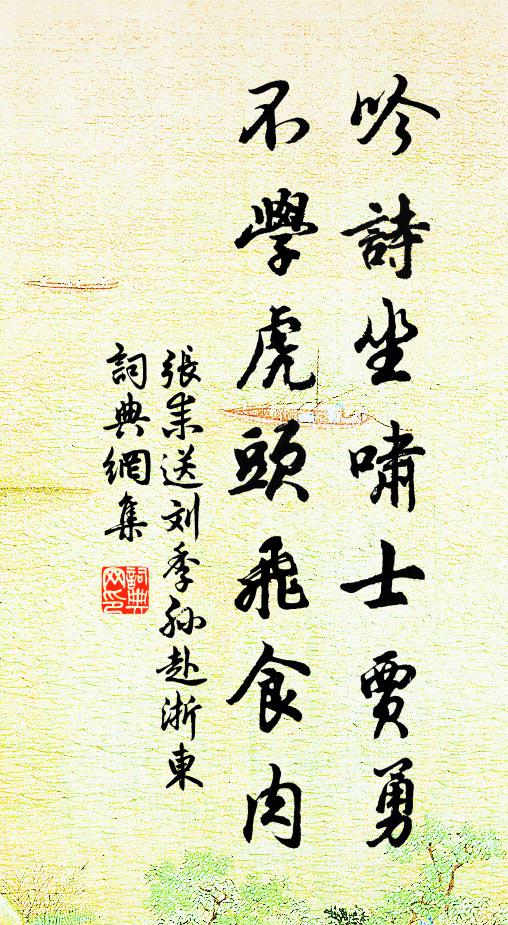 吟詩坐嘯士賈勇
不學虎頭飛食肉
張耒送刘季孙赴浙東
詞典網集
詞典
网印